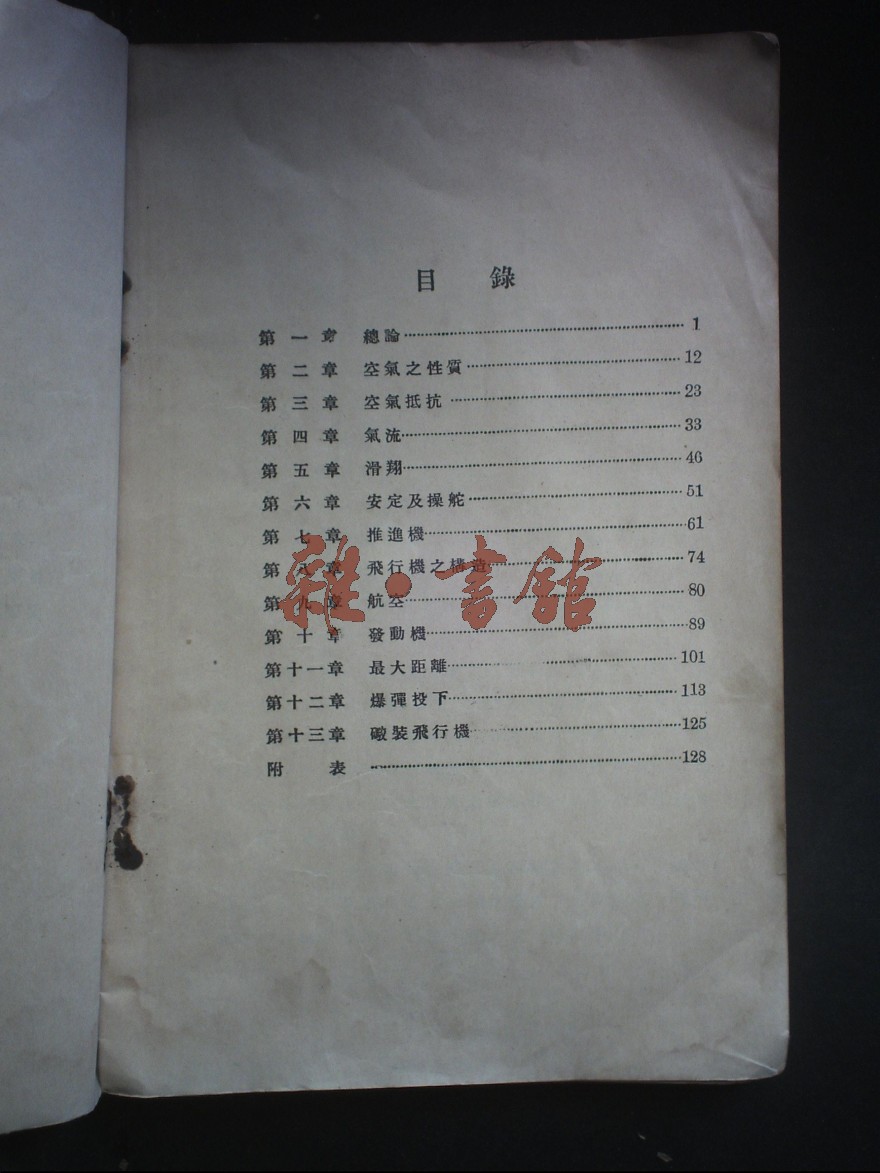 目錄
第一章 總論 1
第二章 空氣之性質 12
第三章 空氣抵抗 23
第四章 氣流 33
第五章 滑翔 46
第六章 安定及操舵 51
第七章 推進機 61
第八章 飛行機之構造 74
第九章 航空 80
第十章 發動機 89
第十一章 最大距離 101
第十二章 爆彈投下 113
第十三章 礮裝飛行機 125
附表 128
雜·書館